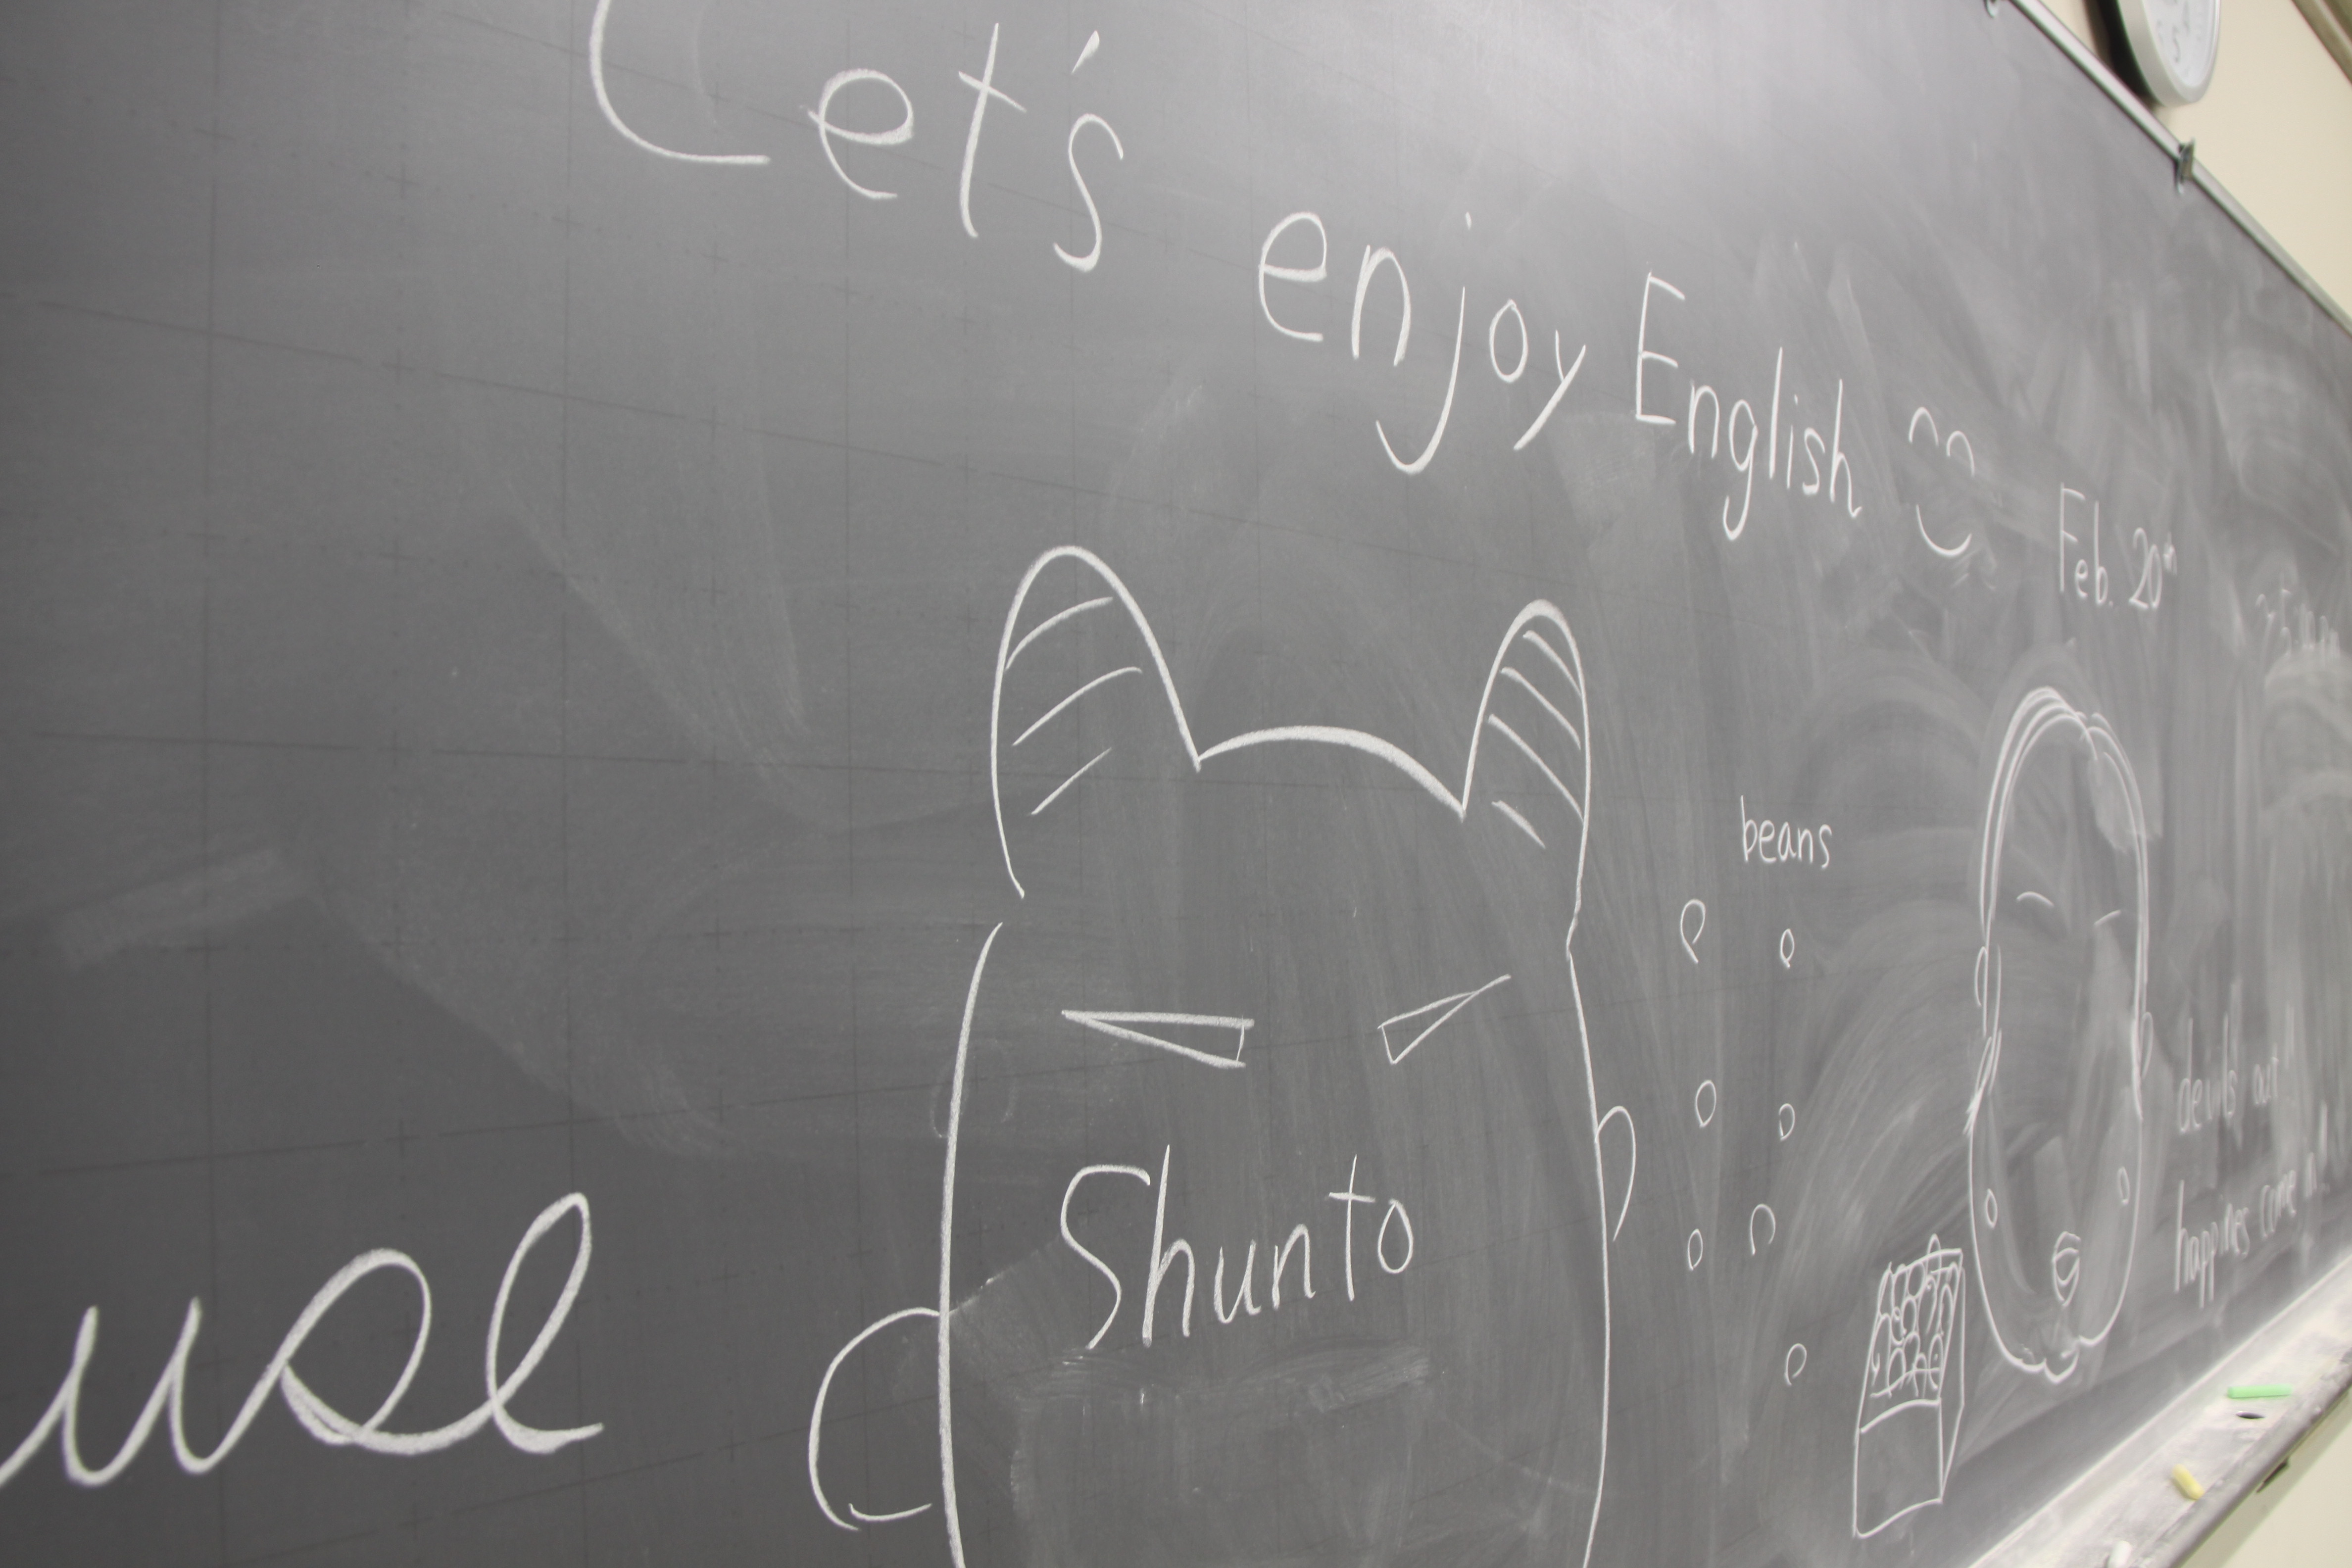 Let's enjoy English
Feb. 20th
beans
Shunto
devils out
happines come in
use